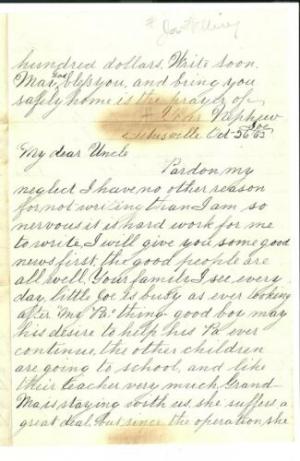 hundred dollars. Write soon.
May God bless you, and bring you
safely home is the prayer of
Your Nephew
Joe
Oct 5 65
My dear Uncle
Pardon my
neglect I have no other reason
for not writing than I am so
nervous it is hard work for me
to write, I will give you some good
news first, the good people are
all well. Your family I see every
day, little Joe is busy as ever looking
after My Pa' thing good boy may
his desire to help his Pa ever
continue, the other children
are going to school, and like
their teacher very much. Grand
Ma is staying with us. she suffers a
great deal. but since the operation she